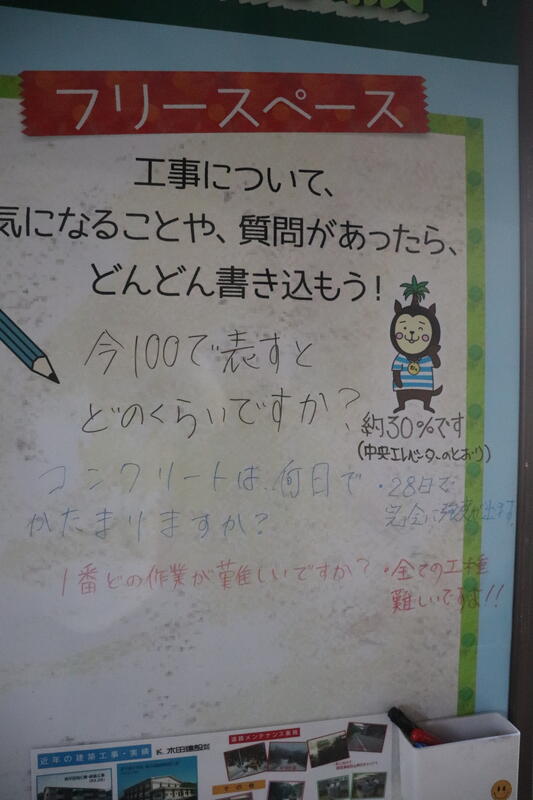 フリースペース
工事について、
気になることや、質問があったら、
どんどん書き込もう！
今100で表すと
どのくらいですか？
約30%です
(中央エレベーターのとおり)
コンクリートは何日で
かたまりますか？
・28日で
完全に強度が出ます
1番どの作業が難しいですか？
・全ての工種
難しいですよ!!
近年の建築工事・実績
木田建設
道路メンテナンス業務
その他